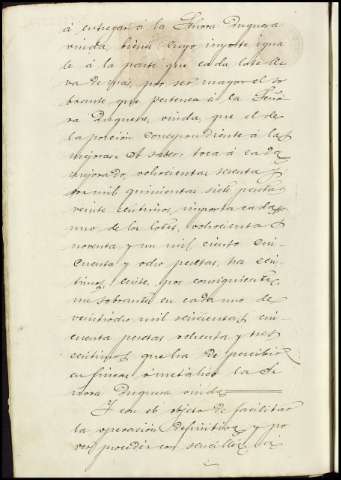 á entregar á la Señora Duquesa
viuda, bienes cuyo importe igua
le á la parte que cada lote lle
va de más, por ser mayor el so
brante que pertenece á la Seño
ra Duquesa, viuda, que el de
la porción correspondiente á las
mejoras. A saber: toca á cada
mejorado, ochocientas sesenta y
mil quinientas siete pesetas
veinte céntimos, importa cada
uno de los lotes, ochocientas
noventa y un mil ciento cin-
cuenta y ocho pesetas, tres cén
timos; existe, por consiguiente,
un sobrante en cada uno de
veintiocho mil seiscientas cin
cuenta pesetas ochenta y tres
céntimos que ha de percibir
en fincas ó metálico la Se
ñora Duquesa viuda
Y con el objeto de facilitar
la operación definitiva y po
der proceder con sencillez,